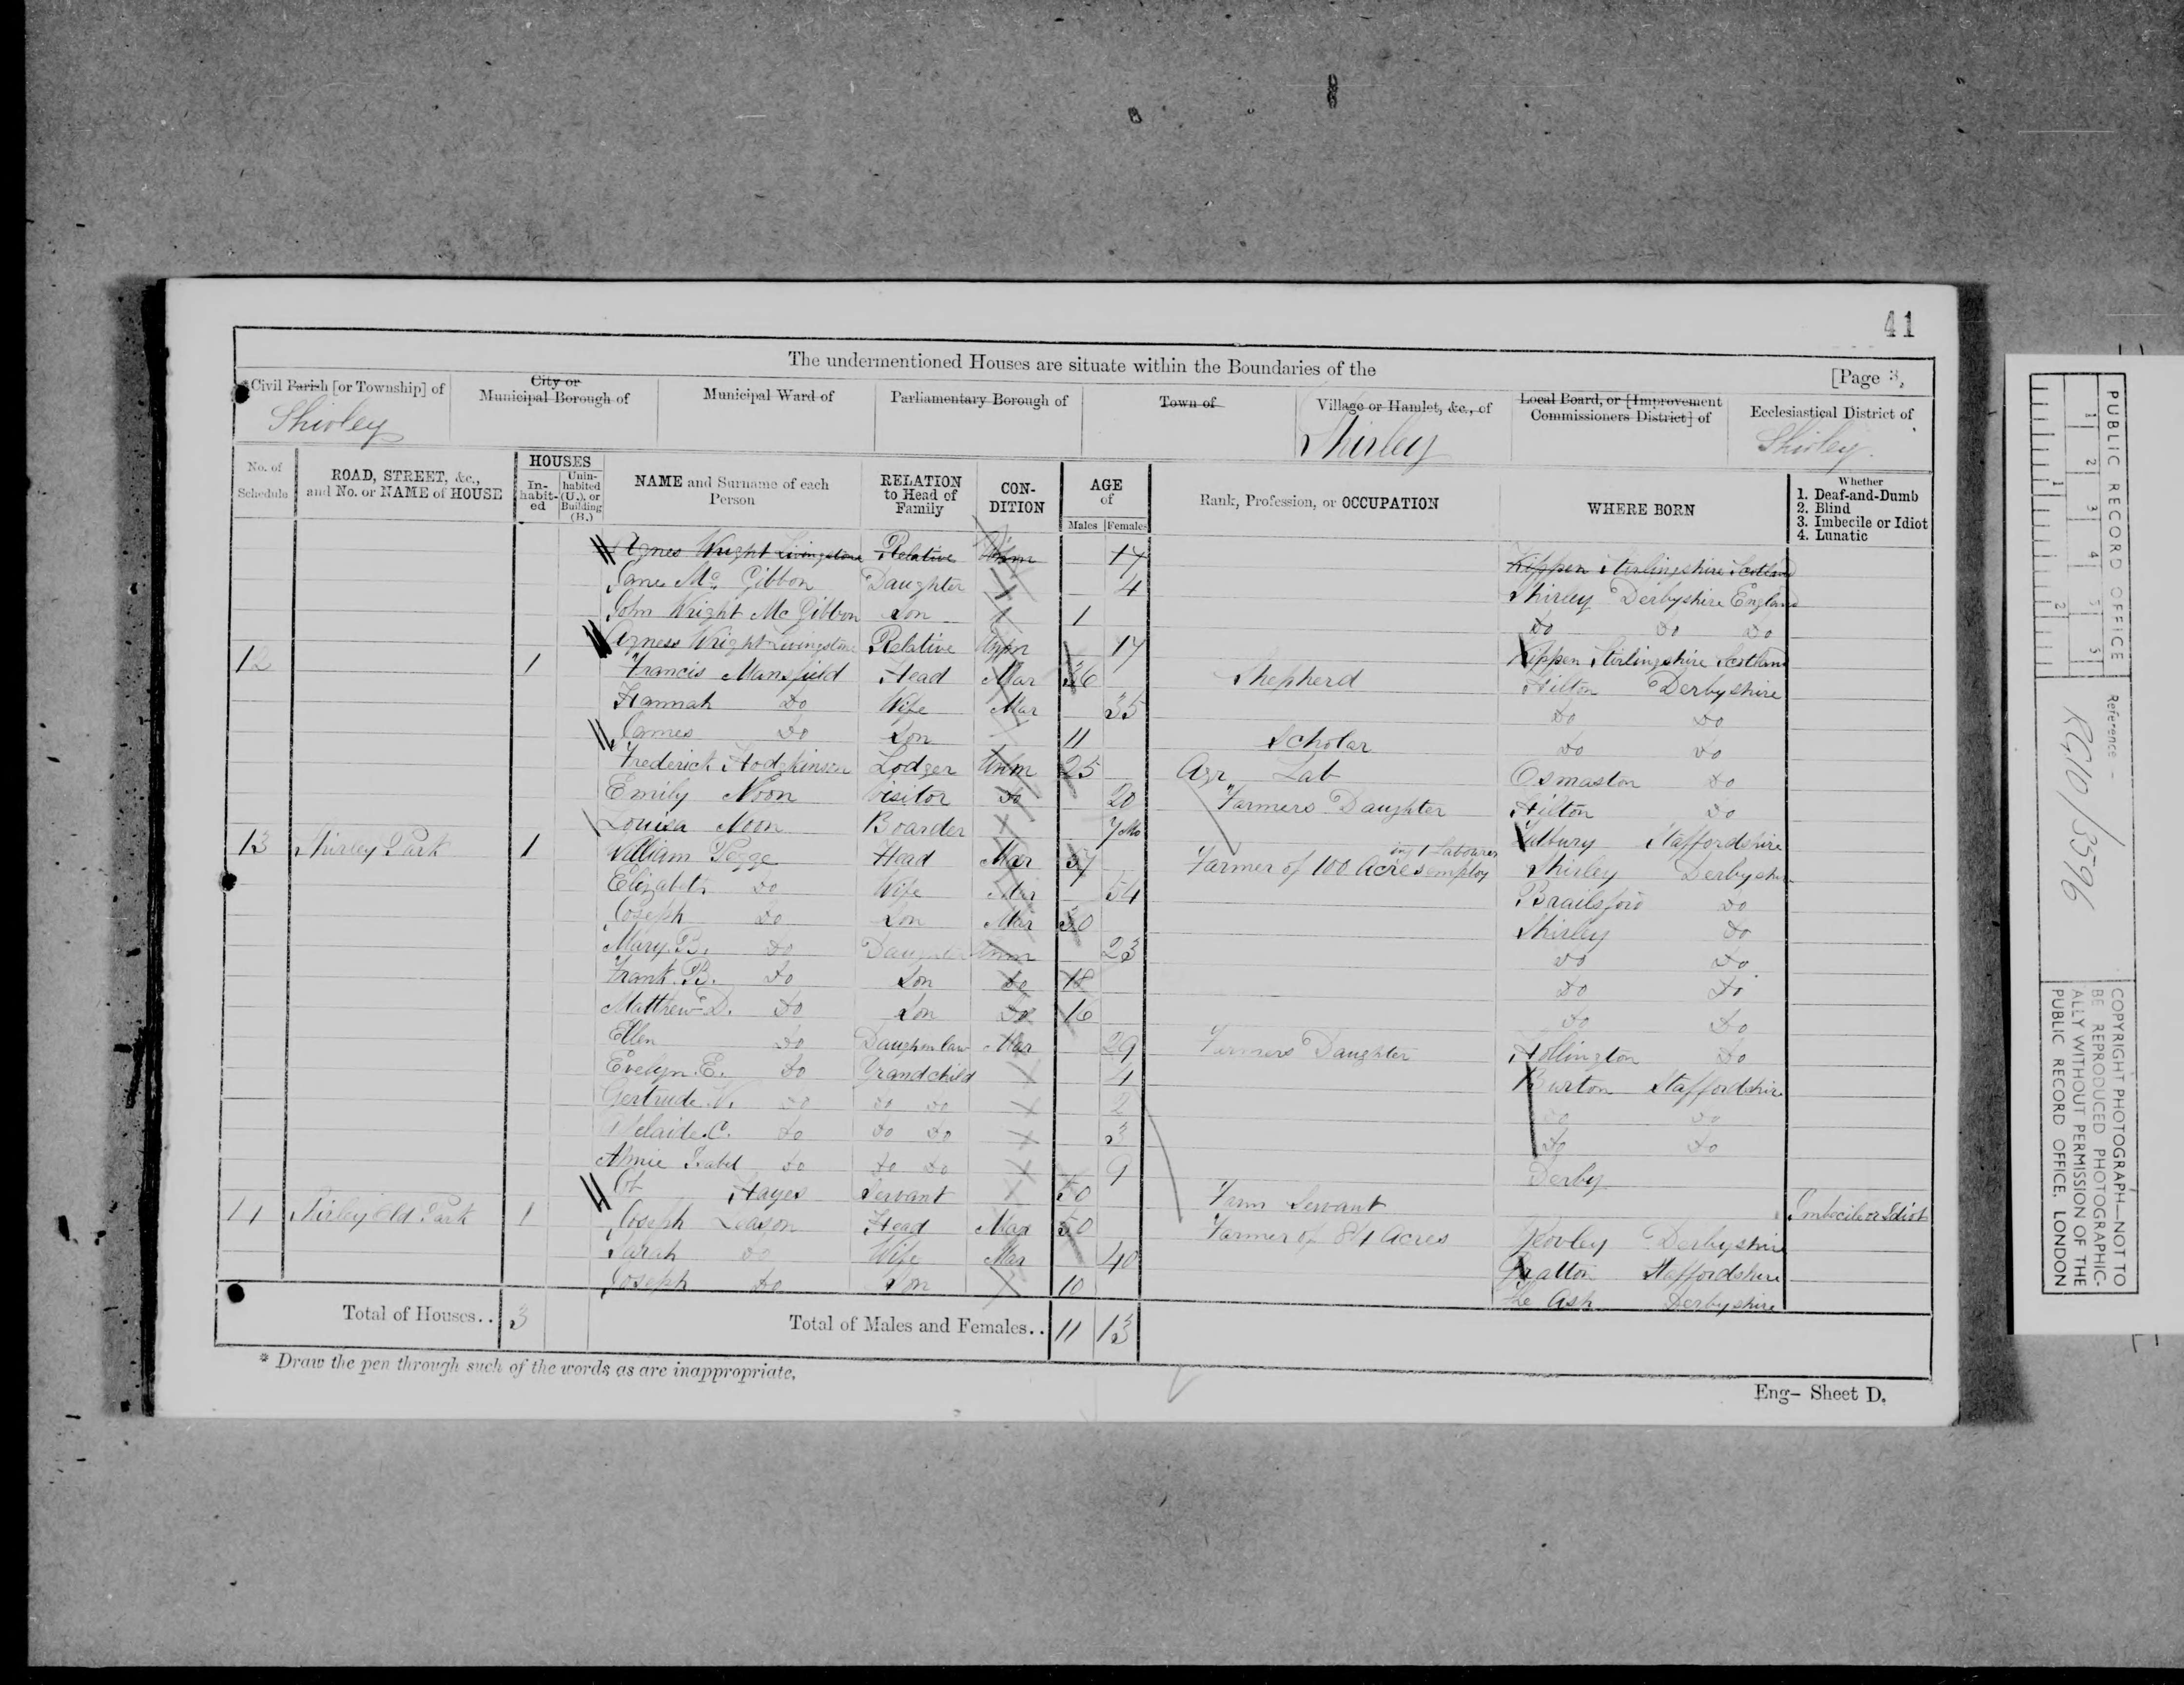 41
The undermentioned Houses are situate within the Boundaries of the [Page 3,
*Civil Parish [or Township] of City or Municipal Borough of Municipal Ward of Parliamentary Borough of Town of Village or Hamlet, &c., of Local Board, or [Improvement Commissioners District] of Ecclesiastical District of
Shirley Shirley Shirley
No. of Schedule ROAD, STREET, &c., and No. or NAME of HOUSE HOUSES In-habit-ed Unin-habited (U.), or Building (B.) NAME and Surname of each Person RELATION to Head of Family CON-DITION AGE of Males Females Rank, Profession, or OCCUPATION WHERE BORN Whether 1. Deaf-and-Dumb 2. Blind 3. Imbecile or Idiot 4. Lunatic
Agnes Wright Livingstone Relative Unm 17 Kippen Stirlingshire Scotland
Jane Mc Gibbon Daughter 4 Shirley Derbyshire England
John Wright Mc Gibbon Son 1 Do Do Do
Agness Wright Livingstone Relative Unm 17 Kippen Stirlingshire Scotland
12 1 Francis Mansfield Head Mar 36 Shepherd Hilton Derbyshire
Hannah Do Wife Mar 35 Do Do
James Do Son 11 Scholar Do Do
Frederick Hodgkinson Lodger Unm 25 Agr Lab Osmaston Do
Emily Noon Visitor Do 20 Farmers Daughter Hilton Do
Louisa Noon Boarder 7 Mo Tutbury Staffordshire
13 Shirley Park 1 William Pegge Head Mar 57 Farmer of 100 Acres employ ing 1 Labourer Shirley Derbyshire
Elizabeth Do Wife Mar 54 Brailsford Do
Joseph Do Son Mar 30 Shirley Do
Mary B. Do Daughter Unm 23 Do Do
Frank B. Do Son Do 18 Do Do
Matthew D. Do Son Do 16 Do Do
Ellen Do Daughinlaw Mar 29 Farmers Daughter Hollington Do
Evelyn E. Do Grandchild 4 Burton Staffordshire
Gertrude Do Do Do 2 Do Do
Adelaide C. Do Do Do 3 Do Do
Annie Isabel Do Do Do 9 Derby
Hayes Servant 50 Farm Servant Imbecile or Idiot
14 Shirley Old Park 1 Joseph Leason Head Mar 50 Farmer of 84 Acres Derbyshire
Sarah Do Wife Mar 40 Staffordshire
Joseph Do Son 10 Ash Derbyshire
Total of Houses.. 3 Total of Males and Females.. 11 13
* Draw the pen through such of the words as are inappropriate.
Eng- Sheet D.
PUBLIC RECORD OFFICE
1 2 3 4 5
1 2
Reference -
RG10/3596
COPYRIGHT PHOTOGRAPH—NOT TO BE REPRODUCED PHOTOGRAPHIC-ALLY WITHOUT PERMISSION OF THE PUBLIC RECORD OFFICE, LONDON